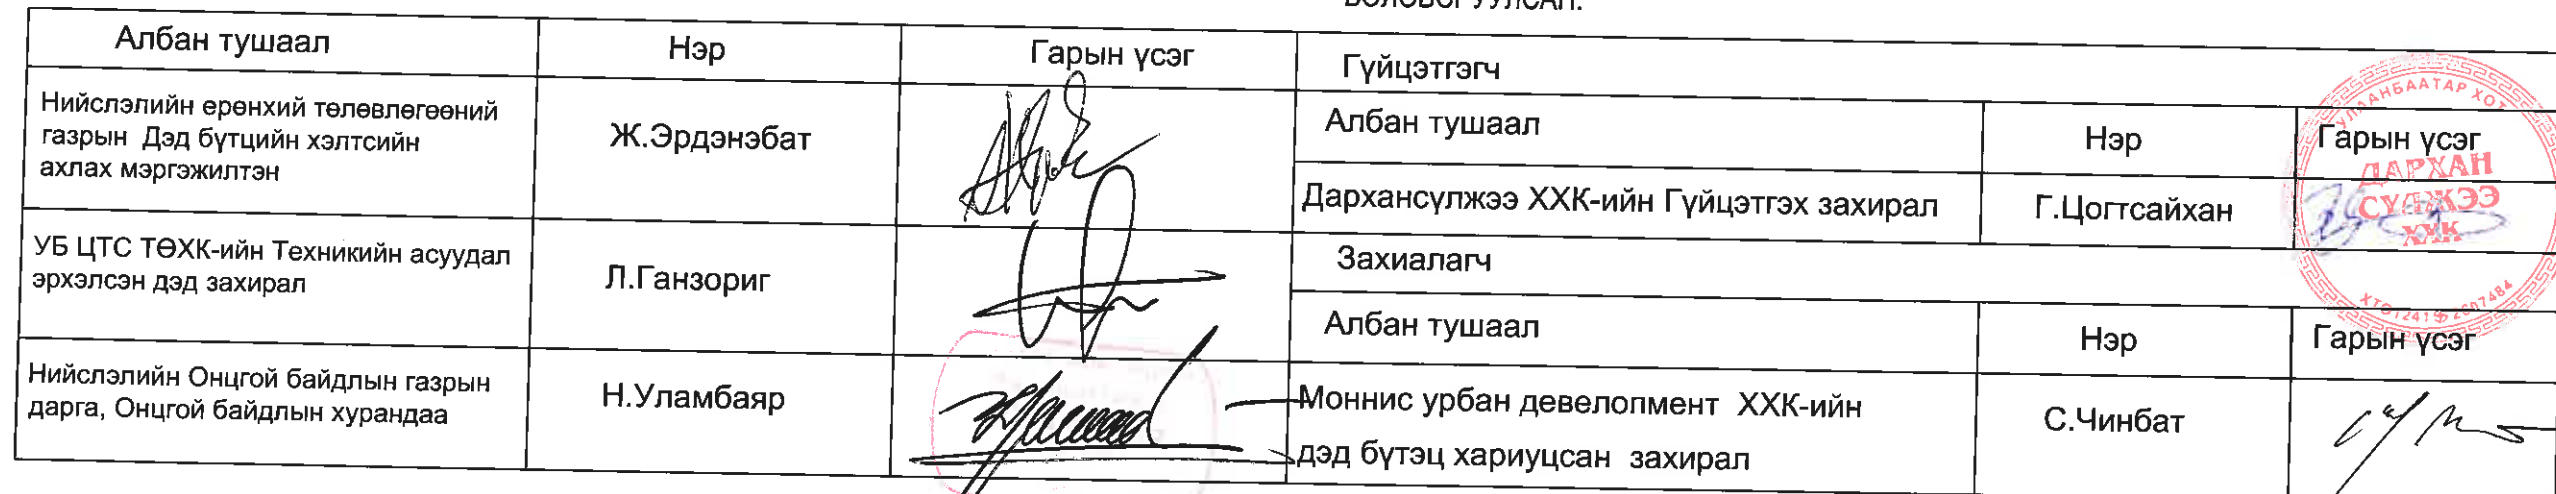 БОЛОВСРУУЛСАН:
Албан тушаал Нэр Гарын үсэг
Нийслэлийн ерөнхий төлөвлөгөөний
газрын Дэд бүтцийн хэлтсийн
ахлах мэргэжилтэн
Ж.Эрдэнэбат
УБ ЦТС ТӨХК-ийн Техникийн асуудал
эрхэлсэн дэд захирал
Л.Ганзориг
Нийслэлийн Онцгой байдлын газрын
дарга, Онцгой байдлын хурандаа
Н.Уламбаяр
Гүйцэтгэгч
Албан тушаал Нэр Гарын үсэг
Дархансүлжээ ХХК-ийн Гүйцэтгэх захирал Г.Цогтсайхан
УЛААНБААТАР ХОТ
ДАРХАН
СҮЛЖЭЭ
ХХК
Захиалагч
Албан тушаал Нэр Гарын үсэг
Моннис урбан девелопмент ХХК-ийн
дэд бүтэц хариуцсан захирал
С.Чинбат